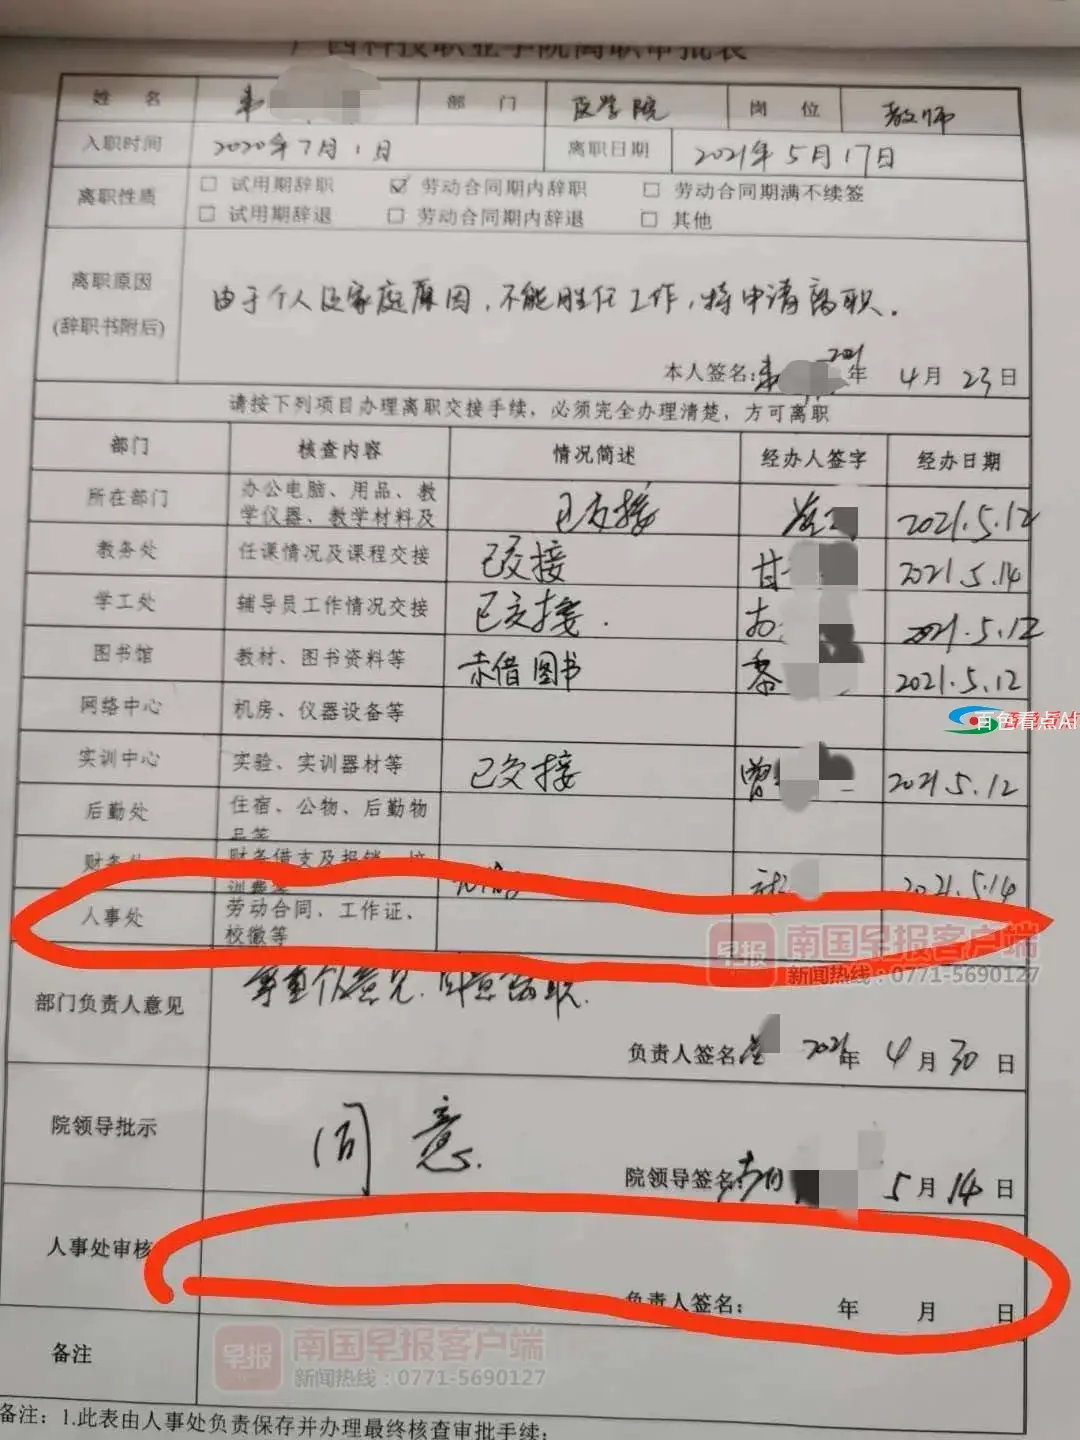 广西科技职业学院离职审批表
姓 名 韦 部 门 医学院 岗 位 教师
入职时间 2020年7月1日 离职日期 2021年5月17日
离职性质 □ 试用期辞职 ☑ 劳动合同期内辞职 □ 劳动合同期满不续签
□ 试用期辞退 □ 劳动合同期内辞退 □ 其他
离职原因
(辞职书附后)
由于个人及家庭原因,不能胜任工作,特申请离职.
本人签名:韦 2021年 4月 23日
请按下列项目办理离职交接手续,必须完全办理清楚,方可离职
部门 核查内容 情况简述 经办人签字 经办日期
所在部门 办公电脑、用品、教
学仪器、教学材料及
已交接 2021.5.12
教务处 任课情况及课程交接 已交接 甘 2021.5.14
学工处 辅导员工作情况交接 已交接. 2021.5.12
图书馆 教材、图书资料等 未借图书 黎 2021.5.12
网络中心 机房、仪器设备等
百色看点AI
实训中心 实验、实训器材等 已交接 曾 2021.5.12
后勤处 住宿、公物、后勤物
品等
财务处 财务借支及报销、培
训费等
2021.5.14
人事处 劳动合同、工作证、
校徽等
早报 南国早报客户端
新闻热线:0771-5690127
部门负责人意见 尊重个人意见.同意离职.
负责人签名 2021年 4月 30日
院领导批示 同意.
院领导签名: 5月 14日
人事处审核
负责人签名: 年 月 日
备注
早报 南国早报客户端
新闻热线:0771-5690127
备注:1.此表由人事处负责保存并办理最终核查审批手续;